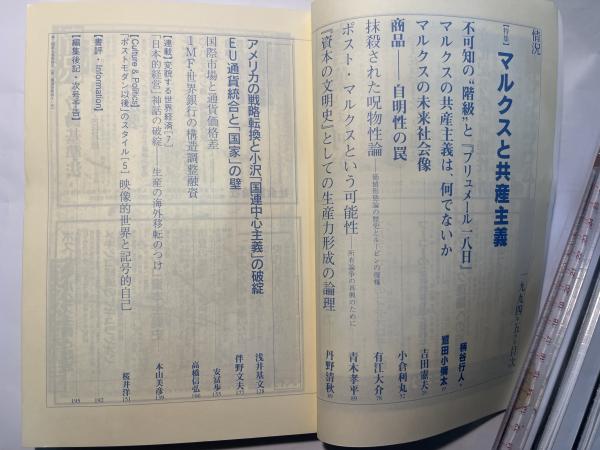 情況
一九九四年五月 目次
[特集] マルクスと共産主義
不可知の“階級”と『ブリュメール一八日』 柄谷行人
マルクスの共産主義は、何でないか 廣田小彌太
マルクスの未来社会像 吉田憲夫
商品――自明性の罠 小倉利丸
抹殺された呪物性論――価値形態論の歴史とルービンの復権 有江大介
ポスト・マルクスという可能性――所有論争の再興のために 青木孝平
『資本の文明史』としての生産力形成の論理 丹野清秋
アメリカの戦略転換と小沢「国連中心主義」の破綻 浅井基文
EU通貨統合と「国家」の壁 伴野文夫
国際市場と通貨価格差 安冨歩 155
IMF世界銀行の構造調整融資 高橋信弘
【連載】変貌する世界経済[7]
「日本的経営」神話の破綻――生産の海外移転のつけ 本山美彦 139
【Culture & Politics】
「ポストモダン以後」のスタイル[5] 映像的世界と記号的自己 桜井洋 151
【書評・Information】 192
【編集後記・次号予告】 195